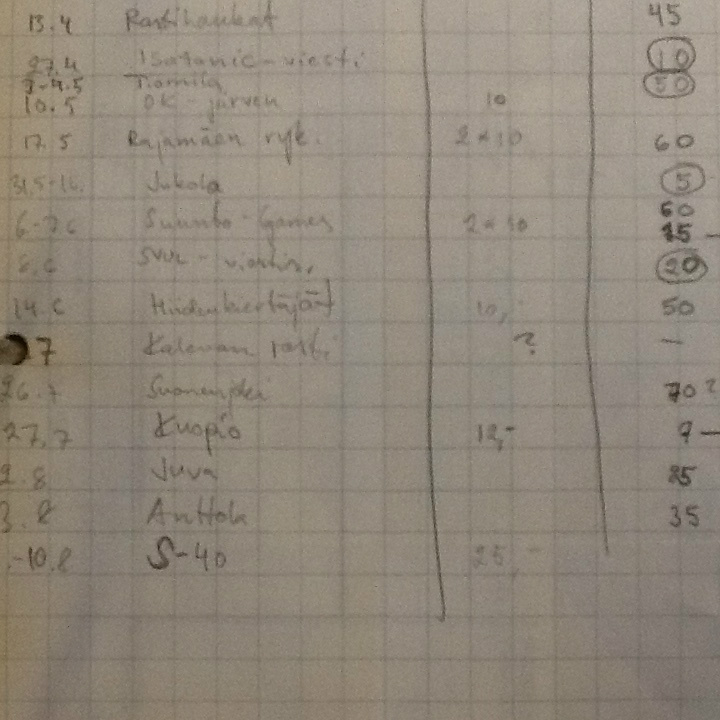 13.4 Rastihaukat 45
27.4 -viesti 10
Tiomila 50
10.5 OK-järven 10
17.5 Rajamäen ryk. 2 x 10 60
Jukola 5
6-7.6 Suunto-Games 2 x 10 60
15 -
8.6 SVUL- 20
14.6 Hiidenkiertäjät 10,- 50
7 Kalevan rasti ? -
26.7 Suonenjoki 70?
27.7 Kuopio 12,- 7 -
2.8 Juva 25
3.8 Anttola 35
-10.8 S-40 25,-